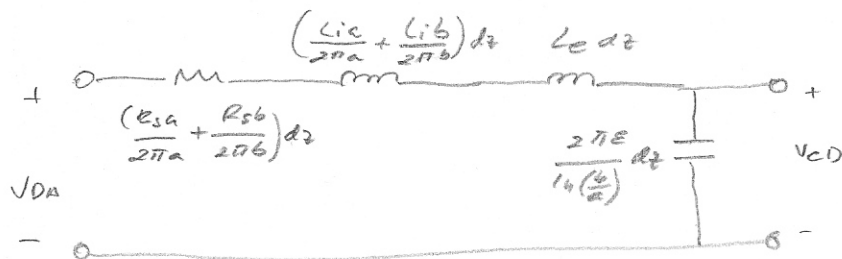 (Lia/2πa + Lib/2πb) dz Le dz
+ +
(Rsa/2πa + Rsb/2πb) dz
2πε/ln(b/a) dz
VDA VCD
- -